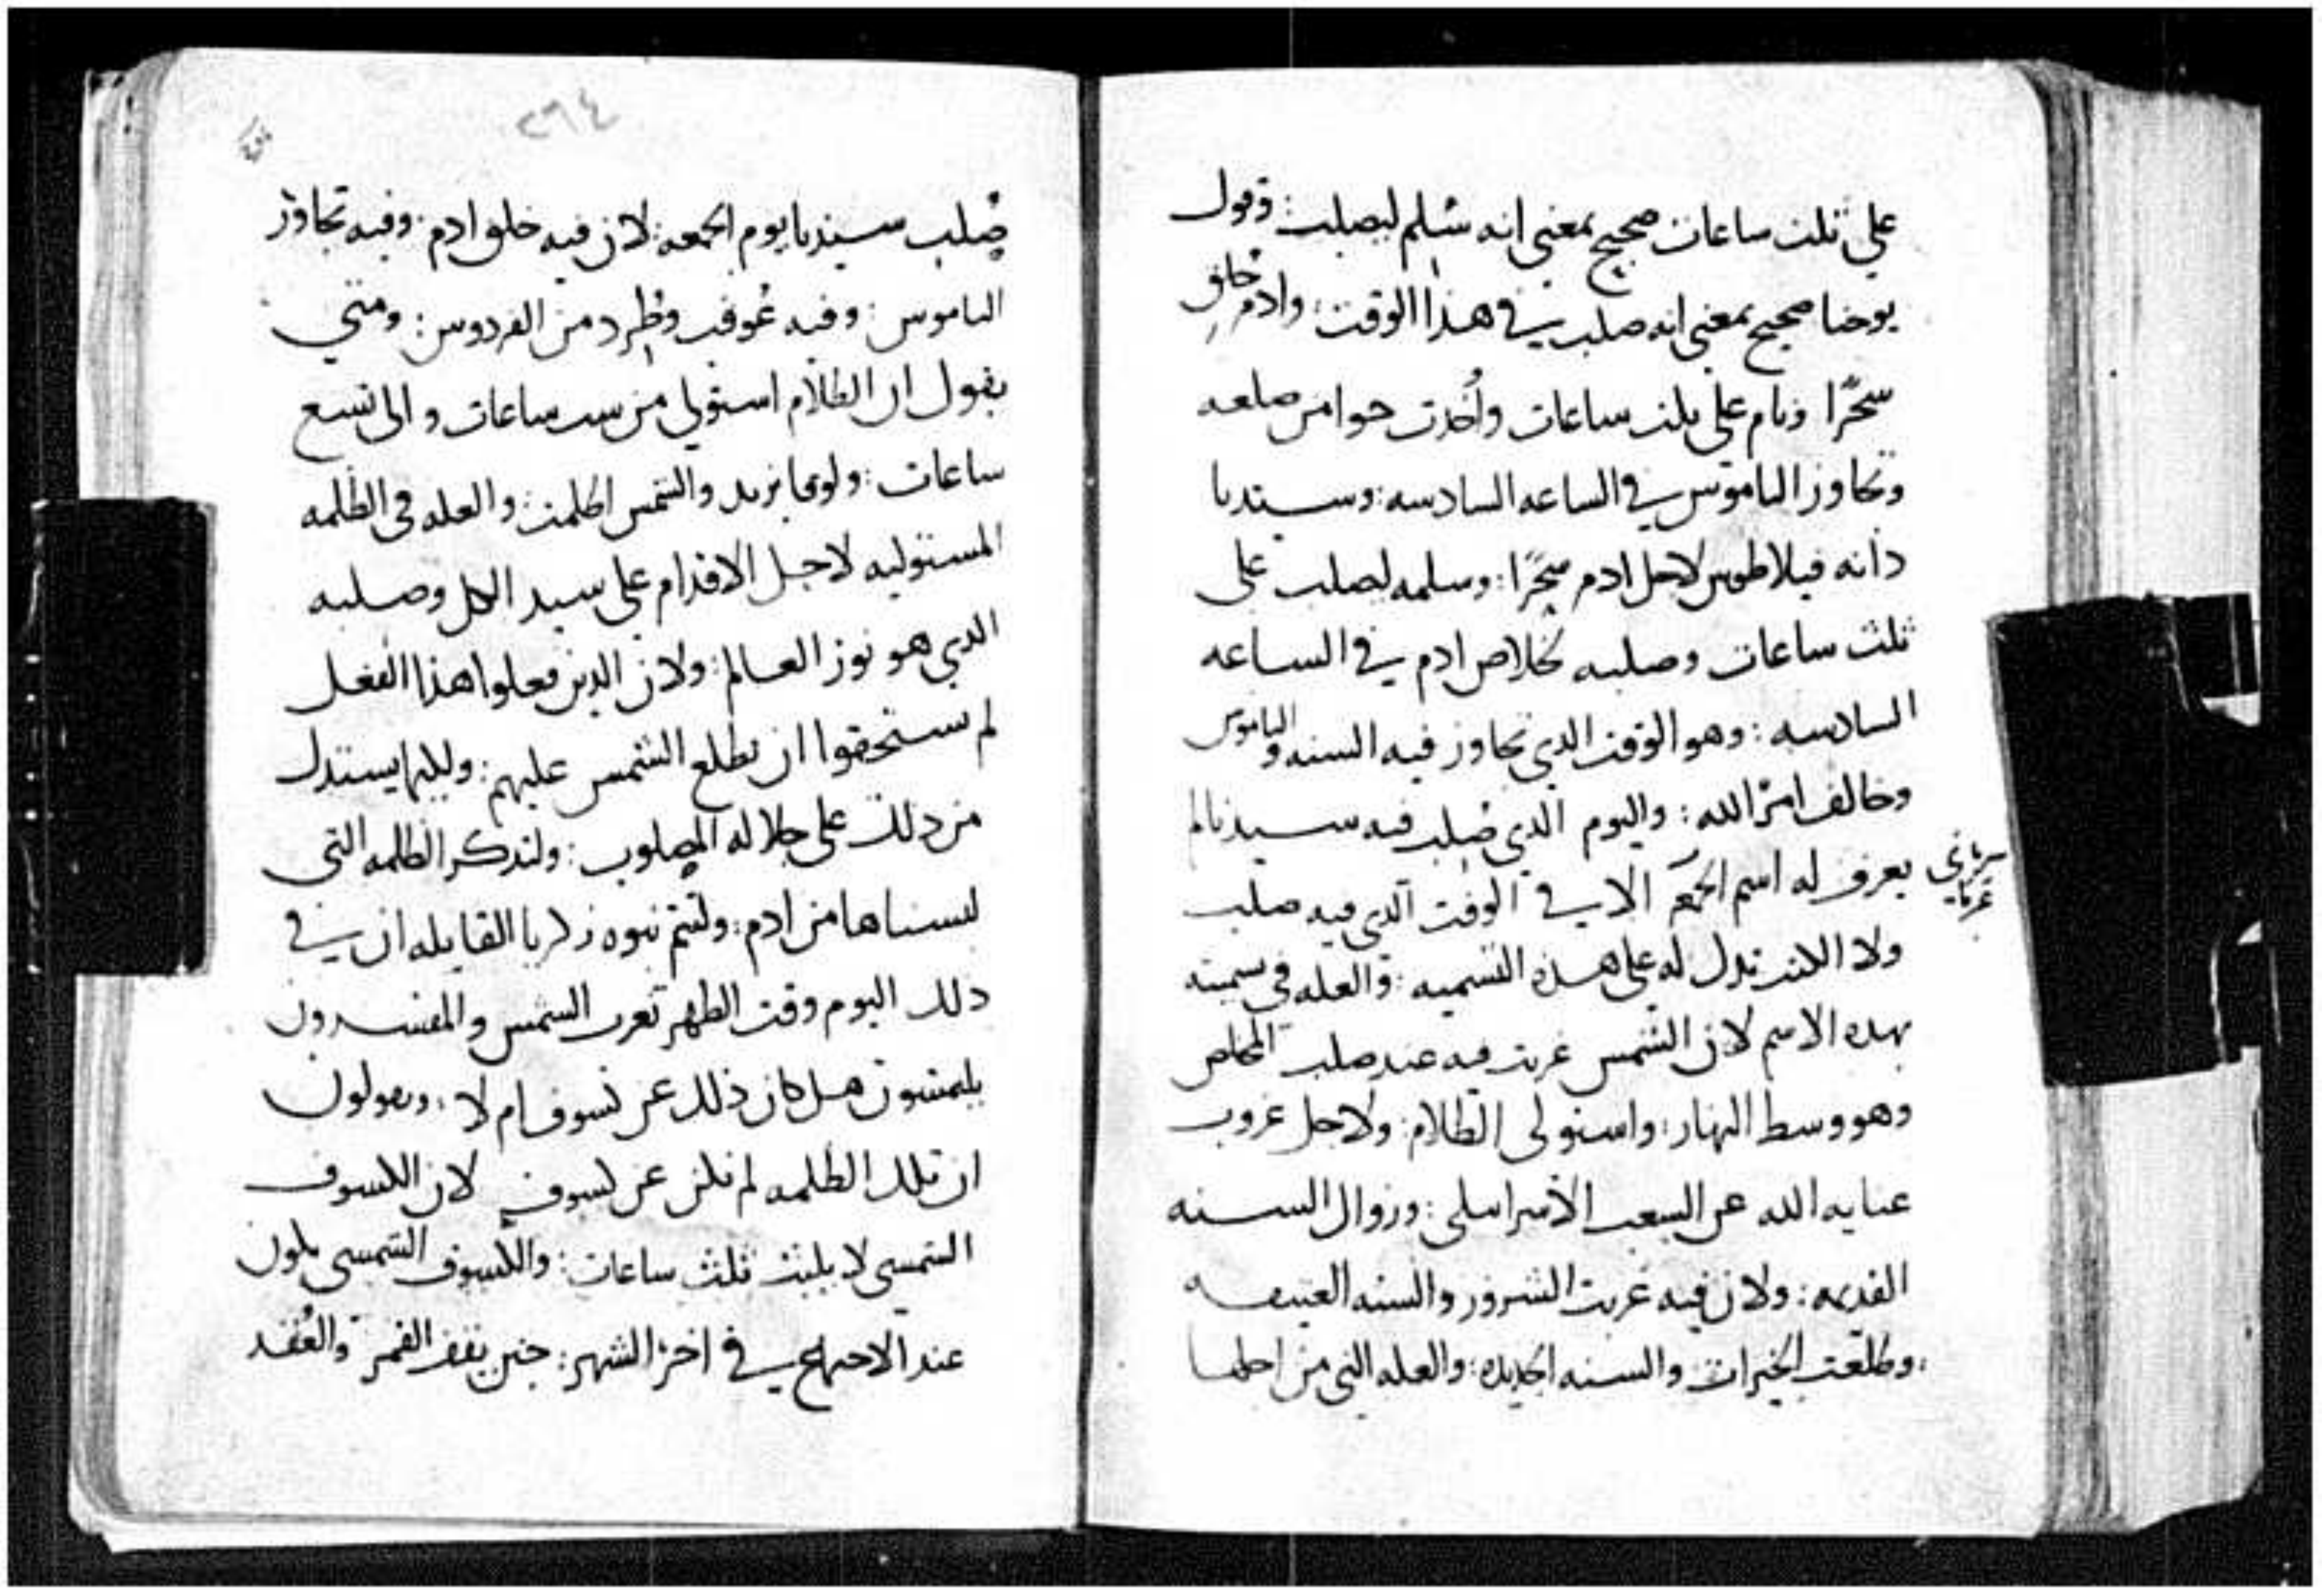 على ثلث ساعات صحيح بمعنى انه سُلم ليصلب وقول
يوحنا صحيح بمعنى انه صلب في هذا الوقت: وادم خلق
سحرًا ونام على ثلث ساعات وأُخدت حوا من ضلعه
وتجاوز الناموس في الساعه السادسه: وسيدنا
دانه فيلاطوس لاجل ادم سحرًا: وسلمه ليصلب على
ثلث ساعات وصلبه لخلاص ادم في الساعه
السادسه: وهو الوقت الدي تجاوز فيه السنه والناموس
وخالف امر الله: واليوم الدي صُلب فيه سيدنا لم
يعرف له اسم الجمعه الا في الوقت الدي فيه صلب
سرياني
عربا
ولا الكتب تدل له على هذه التسميه: والعله في سميته
بهده الاسم لان الشمس غربت فيه عند صلب المخلص
وهو وسط النهار: واستولى الظلام: ولاجل غروب
عنايه الله عن الشعب الاسراىيلى: وزوال السنه
القديمه: ولان فيه غربت الشرور والسنه العتيقه
وطلعت الخيرات والسنه الجديده: والعله التي من اجلها
٢٦٤
صُلب سيدنا يوم الجمعه: لان فيه خلق ادم: وفيه تجاوز
الناموس: وفيه عُوقب وطُرد من الفردوس: ومتي
يقول ان الظلام استولى من ست ساعات والى تسع
ساعات: ولوقا يزيد والشمس اظلمت: والعله في الظلمه
المستوليه لاجل الاقدام على سيد الكل وصلبه
الدي هو نور العالم: ولان الدين فعلوا هذا الفعل
لم يستحقوا ان تطلع الشمس عليهم: وليما يستدل
من ذلك على جلاله المصلوب: ولتدكر الظلمه التي
لبسناها من ادم: ولتتم نبوه زكريا القايله ان في
دلك اليوم وقت الظهر تغرب الشمس والمفسرون
يلتمسون هل كان ذلك عن كسوف ام لا: ويقولون
ان تلك الظلمه لم تكن عن كسوف لان الكسوف
الشمسي لا يلبث ثلث ساعات: والكسوف الشمسي يكون
عند الاجتماع في اخر الشهر: حين يقف القمر والعُقد